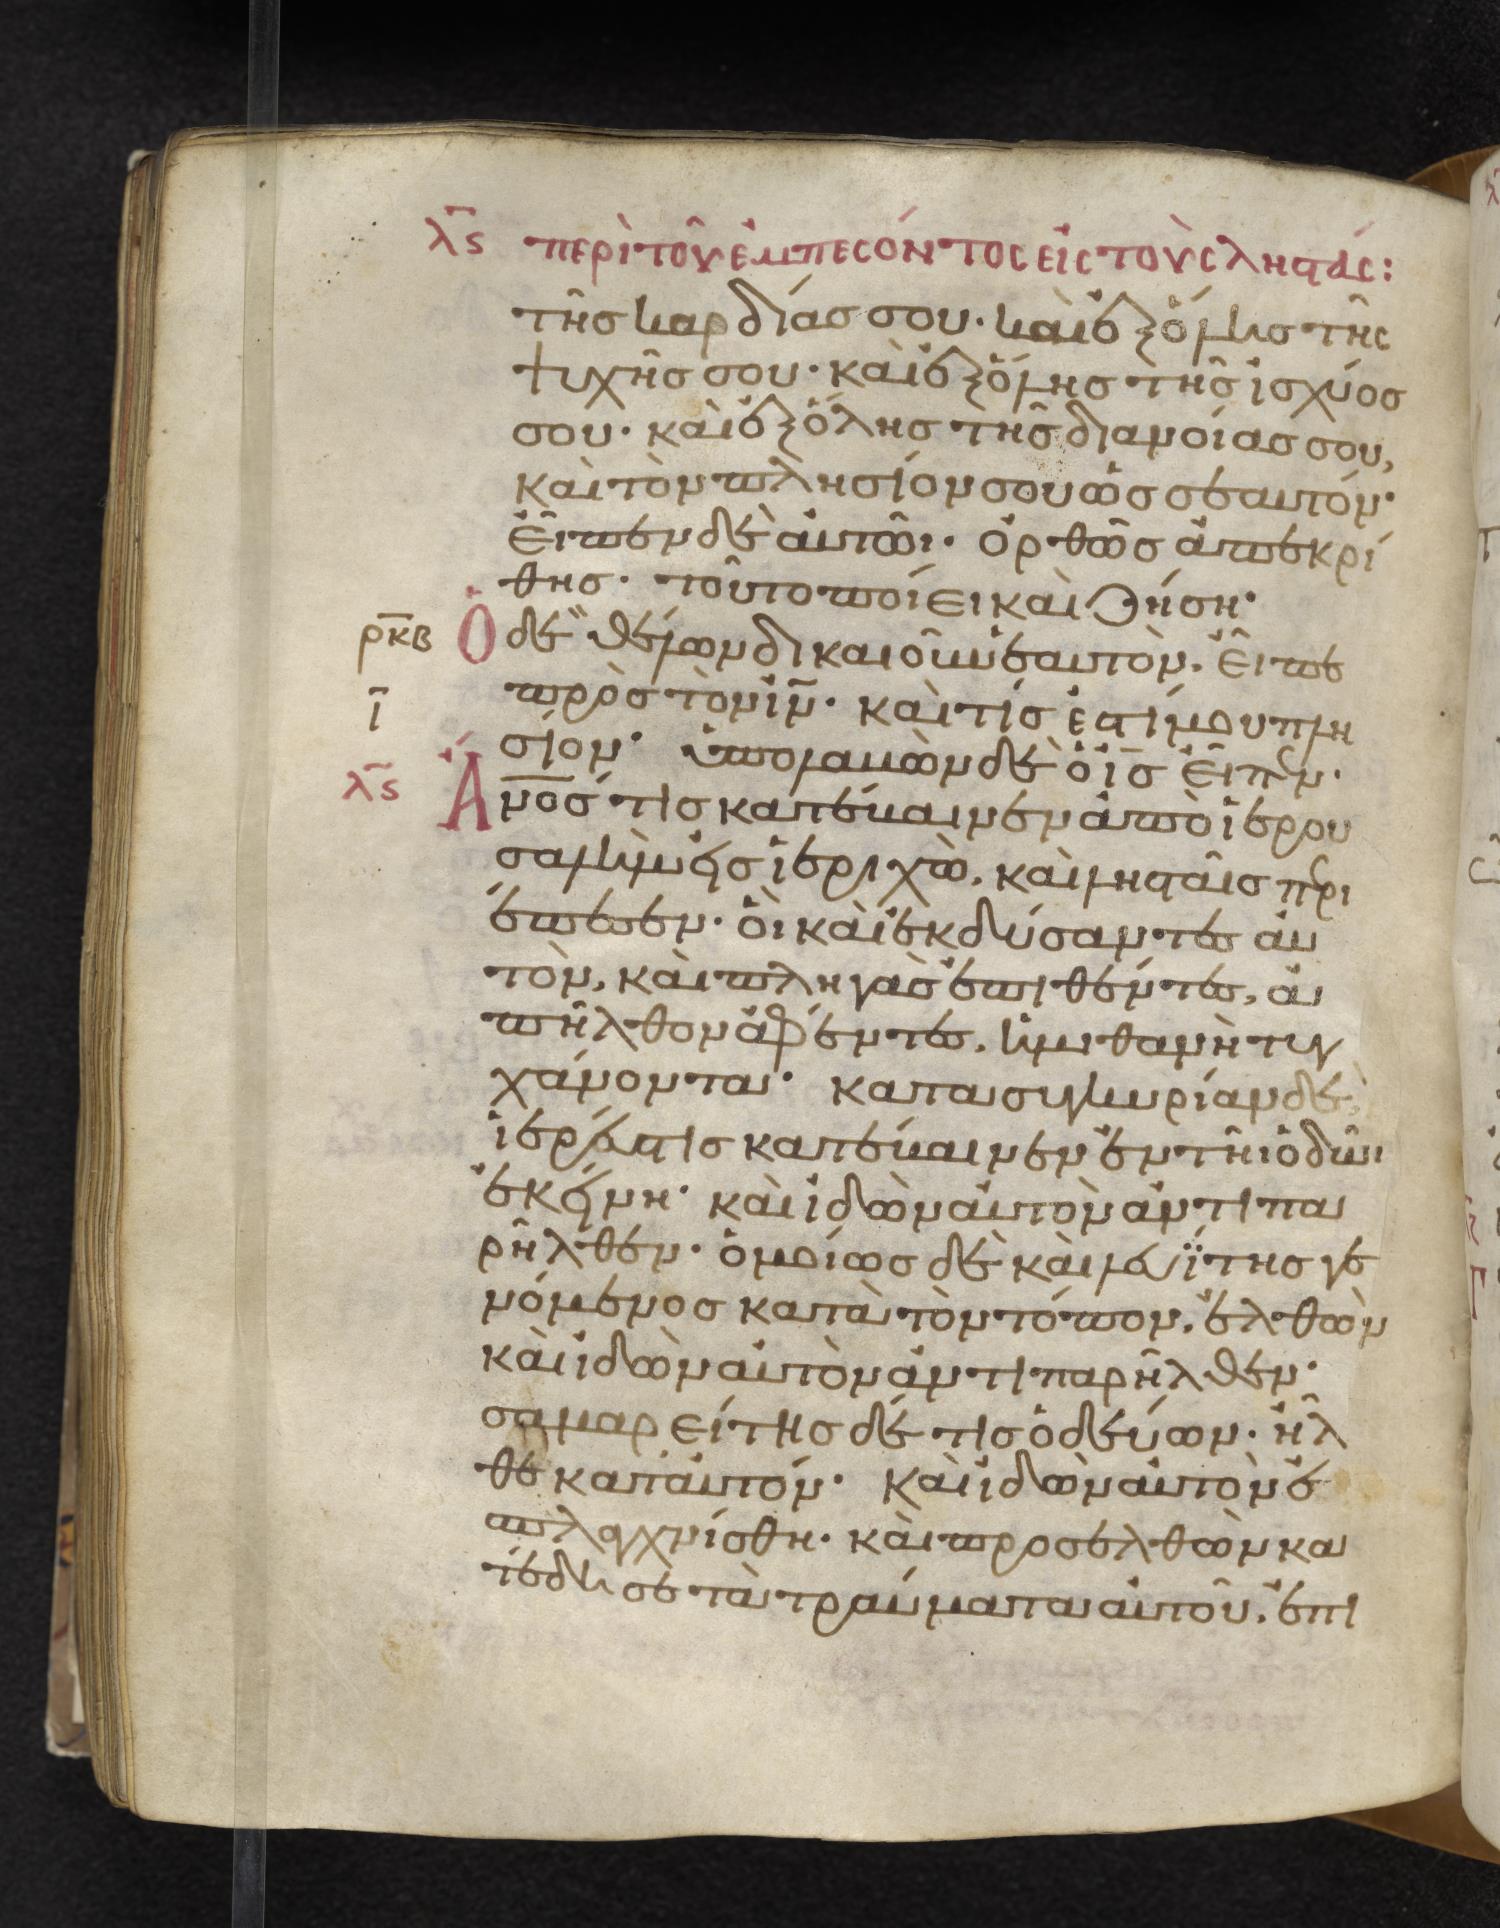 λ̅ς περὶ τοῦ ἐμπεσόντος εἰς τοὺς ληστάς:
τῆς καρδίας σου· καὶ ἐξ ὅλης τῆς
ψυχῆς σου· καὶ ἐξ ὅλης τῆς ἰσχύος
σου· καὶ ἐξ ὅλης τῆς διανοίας σου,
καὶ τὸν πλησίον σου ὡς σεαυτόν·
εἶπεν δὲ αὐτῶι· ὀρθῶς ἀπεκρί
θης· τοῦτο ποίει καὶ ζήση·
ρ̅κ̅β Ὁ δὲ θέλων δικαιοῦν ἑαυτὸν. εἶπε
ι̅ πρὸς τὸν ι̅ν̅· καὶ τίς ἐστί μου πλη
σίον· ὑπολαβὼν δὲ ὁ ι̅ς̅ εἶπεν·
λ̅ς Ἄν̅ο̅ς τις κατέβαινεν ἀπὸ ἱερου
σαλὴμ εἰς ἱεριχὼ. καὶ λησταῖς περι
έπεσεν· οἱ καὶ ἐκδύσαντες αὐ
τὸν, καὶ πληγὰς ἐπιθέντες, ἀ
πῆλθον ἀφέντες. ἡμιθανῆ τυγ
χάνοντα· κατα συγκυρίαν δὲ,
ἱερεύς τις κατέβαινεν ἐν τῆι ὁδῶι
ἐκείνη· καὶ ἰδὼν αὐτὸν ἀντιπα
ρῆλθεν· ὁμοίως δὲ καὶ λευΐτης γε
νόμενος κατὰ τὸν τόπον. ἐλθὼν
καὶ ἰδὼν αὐτὸν ἀντιπαρῆλθεν·
σαμαρείτης δέ τις ὁδεύων. ἦλ
θε κατ αὐτόν· καὶ ἰδὼν αὐτὸν ἐ
σπλαγχνίσθη· καὶ προσελθὼν κα
τέδησε τὰ τραύματα αὐτοῦ. ἐπι